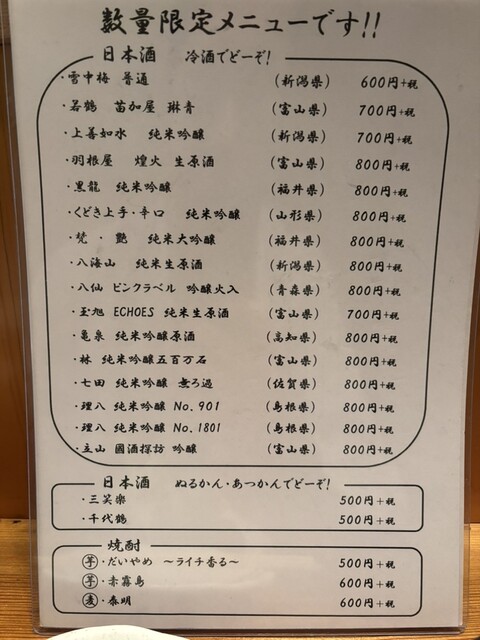 数量限定メニューです!!
日本酒 冷酒でどーぞ!
・雪中梅 普通 (新潟県) 600円+税
・若鶴 苗加屋 琳青 (富山県) 700円+税
・上善如水 純米吟醸 (新潟県) 700円+税
・羽根屋 煌火 生原酒 (富山県) 800円+税
・黒龍 純米吟醸 (福井県) 800円+税
・くどき上手・辛口 純米吟醸 (山形県) 800円+税
・梵・艶 純米大吟醸 (福井県) 800円+税
・八海山 純米生原酒 (新潟県) 800円+税
・八仙 ピンクラベル 吟醸火入 (青森県) 800円+税
・玉旭 ECHOES 純米生原酒 (富山県) 700円+税
・亀泉 純米吟醸原酒 (高知県) 800円+税
・林 純米吟醸五百万石 (富山県) 800円+税
・七田 純米吟醸 無ろ過 (佐賀県) 800円+税
・理八 純米吟醸 No.901 (島根県) 800円+税
・理八 純米吟醸 No.1801 (島根県) 800円+税
・立山 國酒探訪 吟醸 (富山県) 800円+税
日本酒 ぬるかん・あつかんでどーぞ!
・三笑楽 500円+税
・千代鶴 500円+税
焼酎
芋・だいやめ 〜ライチ香る〜 500円+税
芋・赤霧島 600円+税
麦・泰明 600円+税